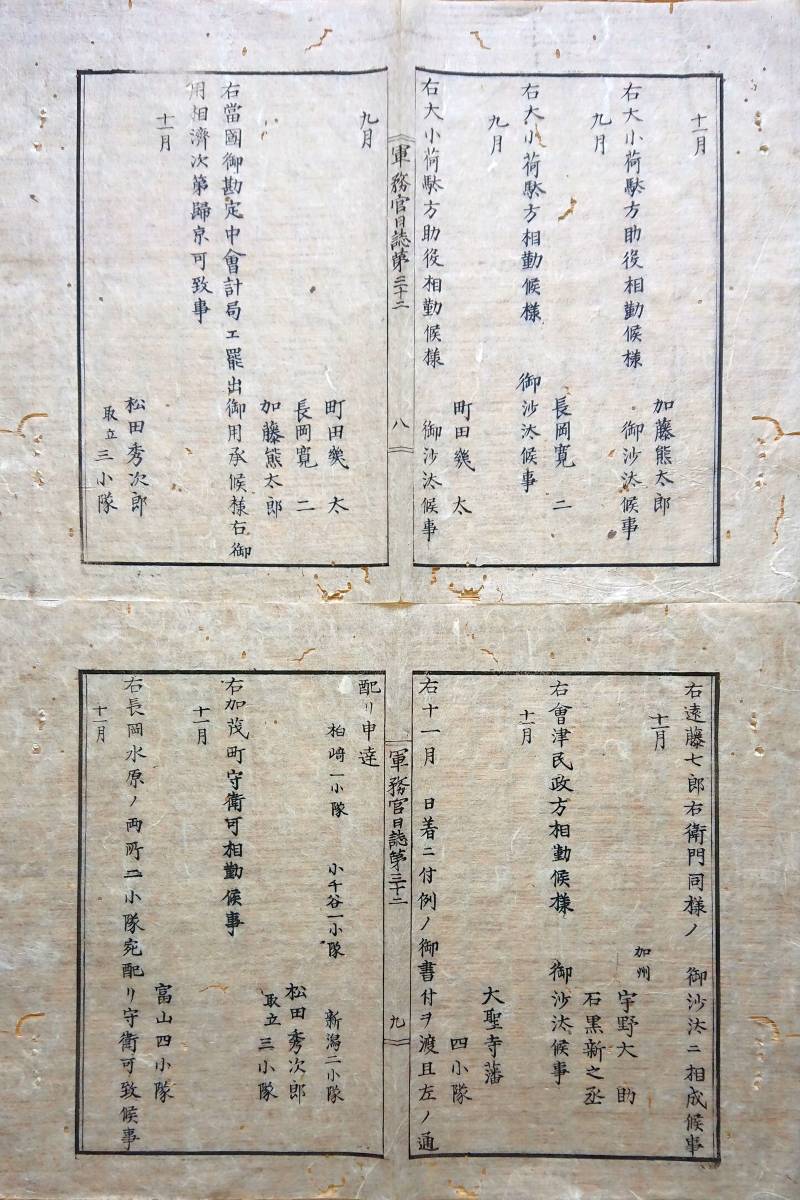 十一月
加藤熊太郎
右大小荷駄方助役相勤候様　御沙汰候事
九月
長岡寛二
右大小荷駄方相勤候様　御沙汰候事
九月
町田幾太
右大小荷駄方助役相勤候様　御沙汰候事
軍務官日誌第三十二　八
九月
町田幾太
長岡寛二
加藤熊太郎
右當國御勘定中會計局エ罷出御用承候様右御
用相濟次第歸京可致事
十一月
松田秀次郎
取立三小隊
右遠藤七郎右衛門同様ノ　御沙汰ニ相成候事
十一月
加州
宇野大助
石黒新之丞
右會津民政方相勤候様　御沙汰候事
十一月
大聖寺藩
四小隊
右十一月　日着ニ付例ノ御書付ヲ渡且左ノ通
軍務官日誌第三十二　九
配リ申達
柏崎一小隊　小千谷一小隊　新潟二小隊
松田秀次郎
取立三小隊
右加茂町守衛可相勤候事
十一月
富山四小隊
右長岡水原ノ両所二小隊宛配リ守衛可致候事
十一月